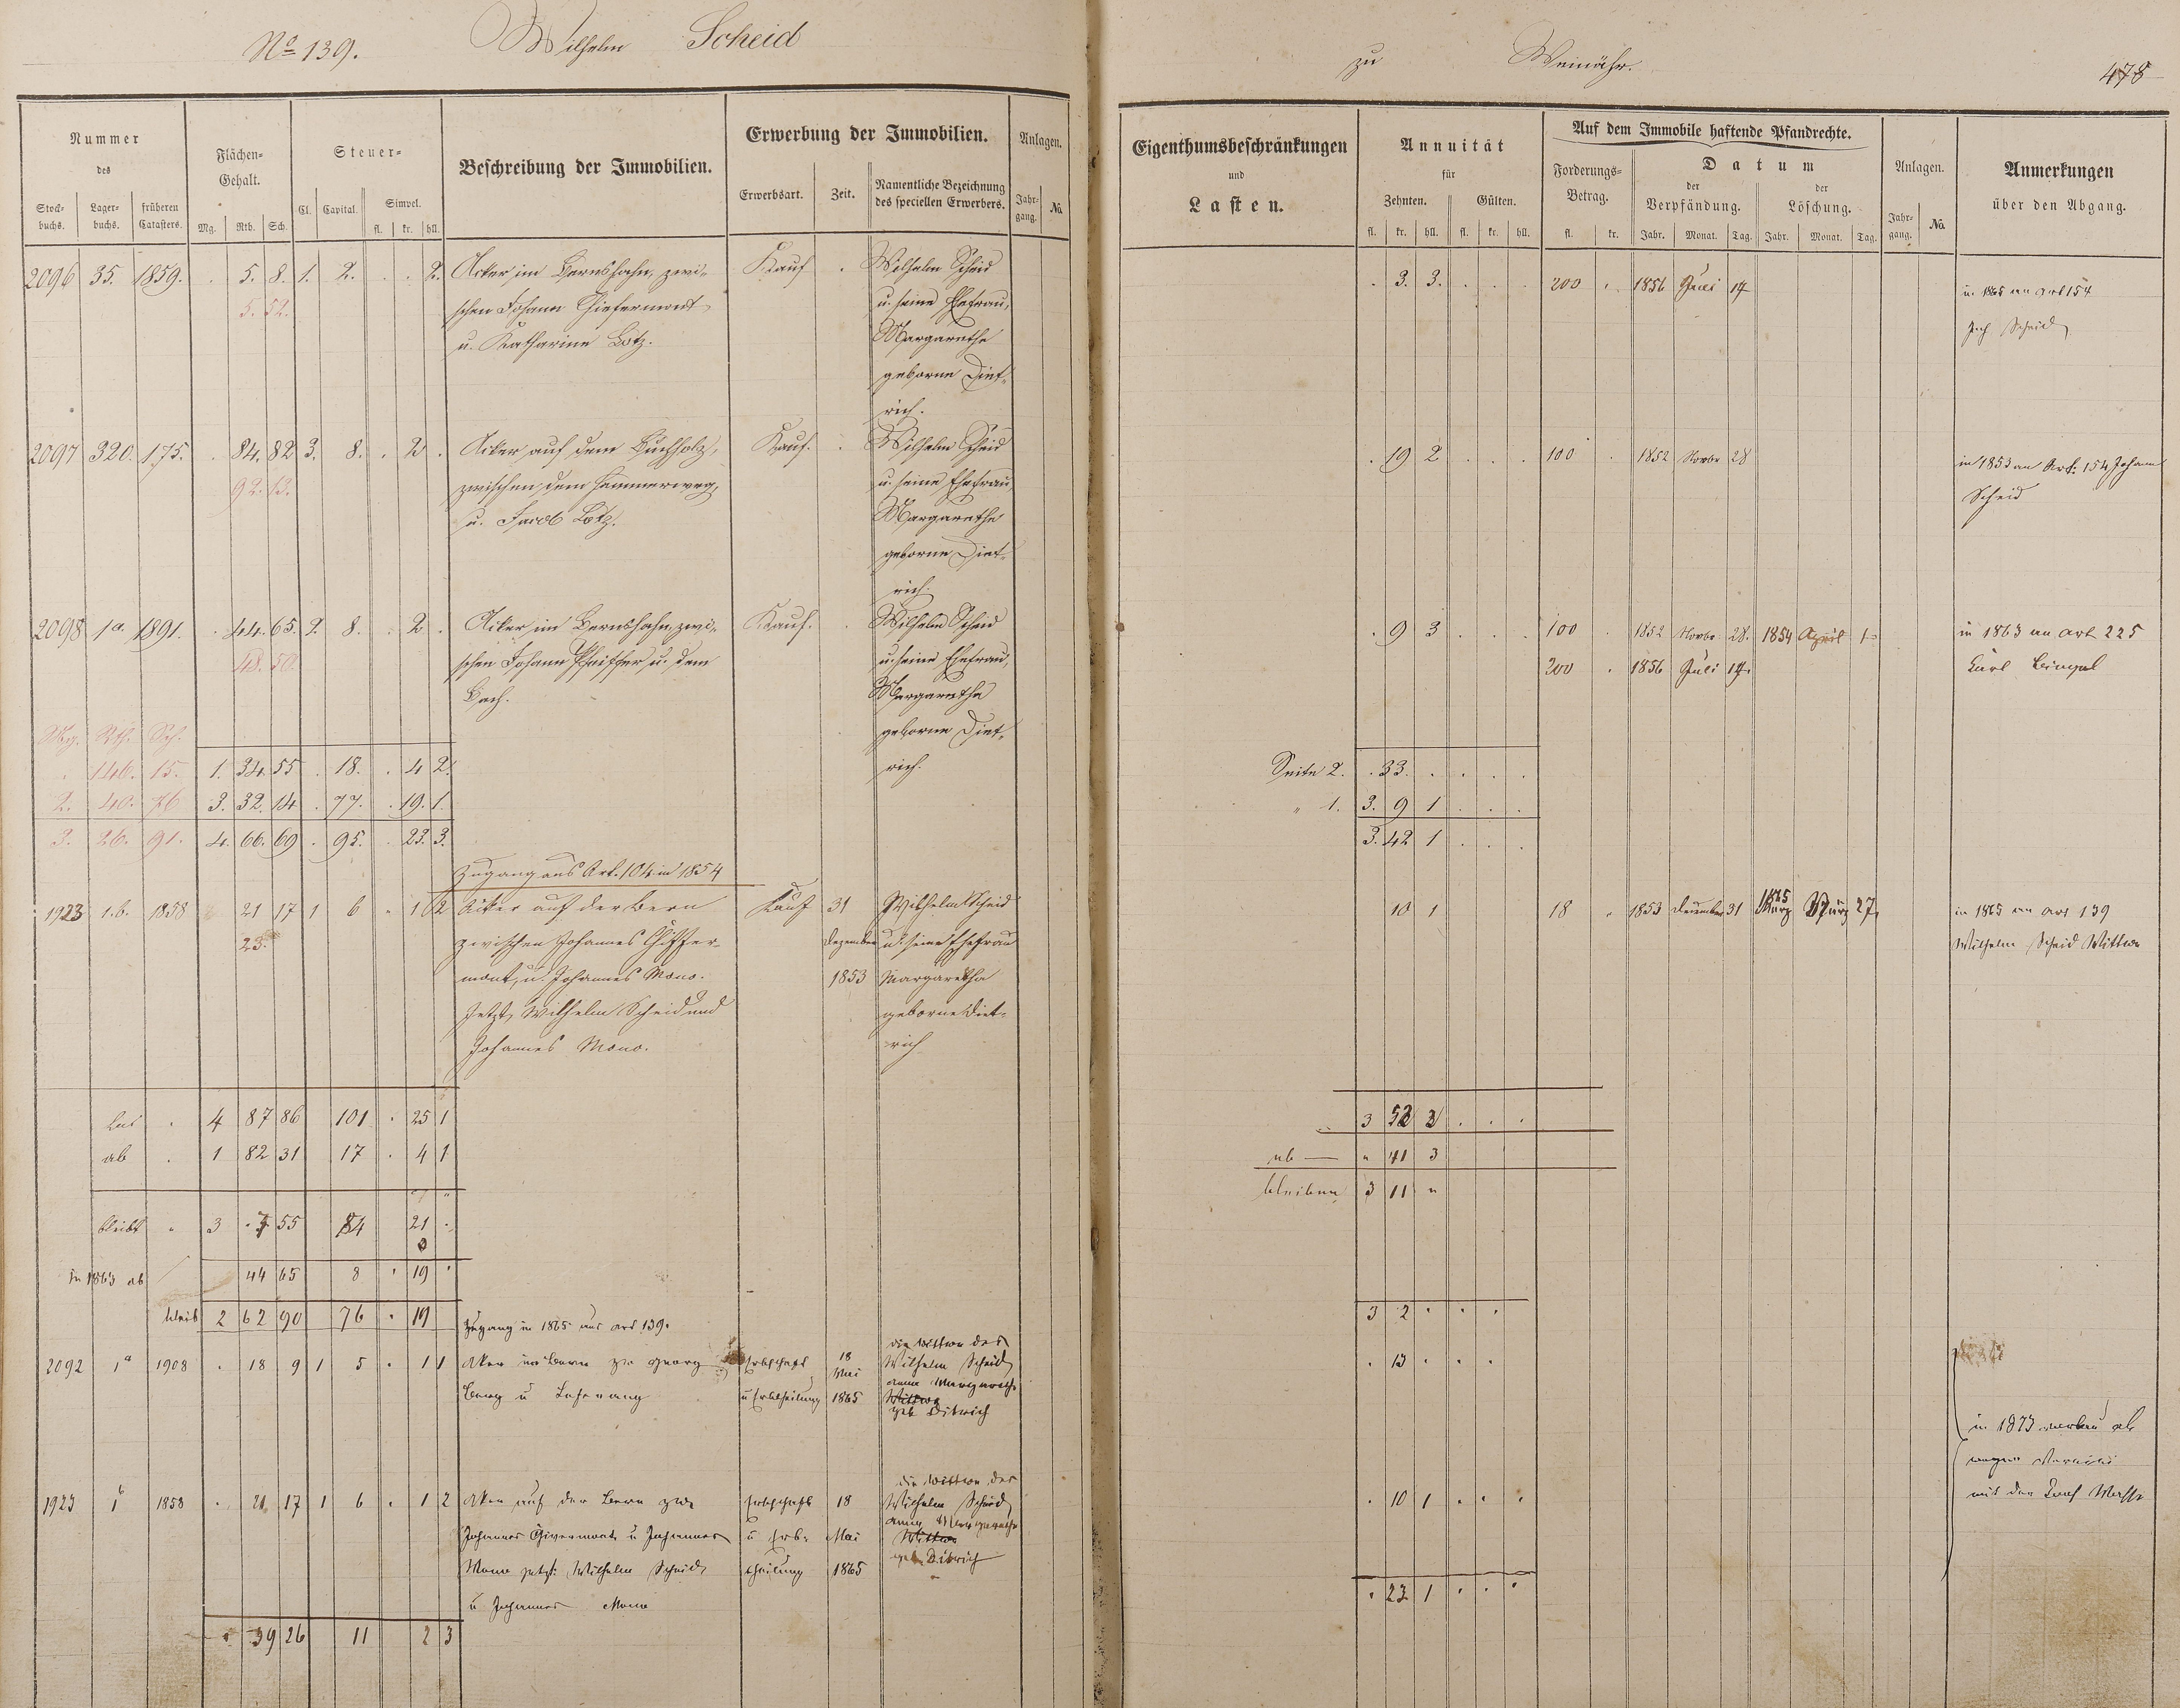 No 139. Wilhelm Scheid
zu Weinähr. 478
Nummer
des
Stock-
buchs.
Lager-
buchs.
früheren
Catasters.
Flächen-
Gehalt.
Mg. Rth. Sch.
Steuer-
Cl. Capital. Simpel.
fl. kr. hll.
Beschreibung der Immobilien.
Erwerbung der Immobilien.
Erwerbsart. Zeit.
Namentliche Bezeichnung
des speciellen Erwerbers.
Anlagen.
Jahr-
gang. No.
Eigenthumsbeschränkungen
und
Lasten.
Annuität
für
Zehnten. Gülten.
fl. kr. hll. fl. kr. hll.
Auf dem Immobile haftende Pfandrechte.
Forderungs-
Betrag.
fl. kr.
Datum
der
Verpfändung.
der
Löschung.
Jahr. Monat. Tag. Jahr. Monat. Tag.
Anlagen.
Jahr-
gang. No.
Anmerkungen
über den Abgang.
2096 35. 1859. . 5. 8. 1. 2. . . 2. Acker im Bernshahn, zwi-
5. 52. schen Johann Chifermont
u. Katharine Lotz.
Kauf .
Wilhelm Scheid
u. seine Ehefrau,
Margarethe
geborne Diet-
rich.
. 3. 3. . . . 200 . 1856 Juli 14
in 1865 an art 154
Joh Scheid
2097 320. 175. . 84. 82 3. 8. . 2 . Acker auf dem Buchholz,
92. 13. zwischen dem Hammerweg,
u. Jacob Lotz.
Kauf. .
Wilhelm Scheid
u. seine Ehefrau,
Margarethe
geborne Diet-
rich
. 19 2 . . . 100 . 1852 Novbr 28
in 1853 an Art. 154 Johann
Scheid
2098 1a. 1891. . 44. 65. 2. 8. . 2 . Acker im Bernshahn, zwi-
48. 50. schen Johann Pfeiffer u. dem
Bach.
Kauf. .
Wilhelm Scheid
u. seine Ehefrau,
Margaretha
geborne Diet-
rich.
. 9 3 . . . 100 . 1852 Novbr. 28. 1854 April 1
200 . 1856 Juli 14.
in 1863 an art 225
Karl
Mg. Rth. Sch.
. 146. 15. 1. 34. 55 . 18. . 4 2.
2. 40. 76 3. 32. 14 . 77. . 19. 1.
3. 26. 91. 4. 66. 69 . 95. . 23. 3.
Seite 2. . 33. . . . .
" 1. 3. 9 1 . . .
3. 42 1 . . .
Zugang aus Art. 104 in 1854
1923 1.b. 1858 21 17 1 6 " 1 2 Acker auf der Bern
23. zwischen Johannes Chiffer-
mont, u. Johannes Mono.
Jetzt, Wilhelm Scheid und
Johannes Mono.
Kauf 31
Dezember
1853
Wilhelm Scheid
u. seine Ehefrau
Margaretha
geborne Diet-
rich
10 1 18 " 1853 Dezember 31 1865 März 27
in 1865 an art 139
Wilhelm Scheid Wittwe
4 87 86 101 . 25 1
ab . 1 82 31 17 . 4 1
bleibt " 3 . 5 55 84 21 .
in 1863 ab 44 65 8
bleib 2 62 90 76 . 19
3 52 2 . . .
ab — " 41 3
bleiben 3 11 "
3 2 . . .
Zugang in 1865 aus art 139.
2092 1a 1908 . 18 9 1 5 . 1 1
Erbschaft
u Erbtheilung
18
Mai
1865
die Wittwe des
Wilhelm Scheid
Anna Margareth
Wittwe
geb Ditrich
. 13 . . .
1923 1b 1858 . 21 17 1 6 . 1 2 Aker auf der Bern zw
Johannes Givermont u Johannes
Mono jetzt Wilhelm Scheid
u Johannes Mono
Erbschaft
u Erb-
theilung
18
Mai
1865
die Wittwe des
Wilhelm Scheid
Anna Margareth
Wittwe
geb. Ditrich
. 10 1 . . .
in 1873 ab
wegen
mit der
. 39 26 11 2 3
. 23 1 . . .